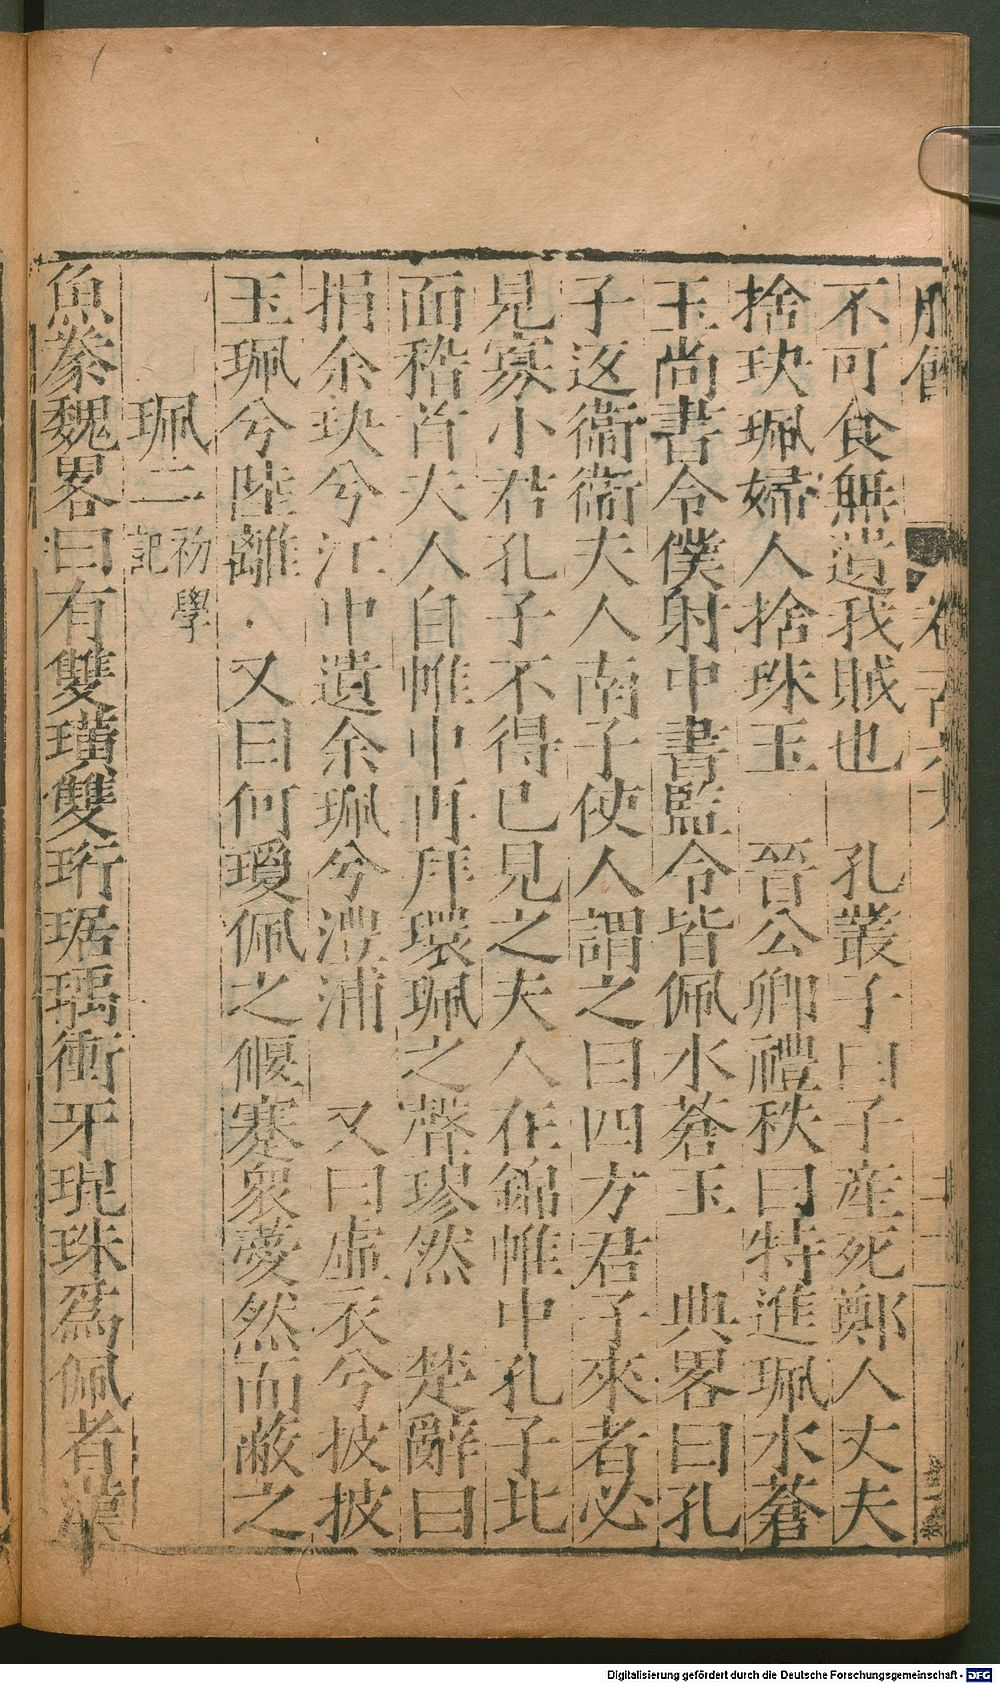 不可食無遺我賊也　孔叢子曰子産死鄭人丈夫
捨玦珮婦人捨珠玉　晉公卿禮秩曰特進珮水蒼
玉尚書令僕射中書監令皆佩水蒼玉　典畧曰孔
子返衞衞夫人南子使人謂之曰四方君子來者必
見寡小君孔子不得已見之夫人在錦帷中孔子北
面稽首夫人自帷中再拜環珮之聲璆然　楚辭曰
捐余玦兮江中遺余珮兮澧浦　又曰虛衣兮披披
玉珮兮陸離．又曰何瓊佩之偃蹇衆薆然而蔽之
珮二初學記
魚豢魏畧曰有雙璜雙珩琚瑀衝牙琨珠爲佩者漢
Digitalisierung gefördert durch die Deutsche Forschungsgemeinschaft - DFG